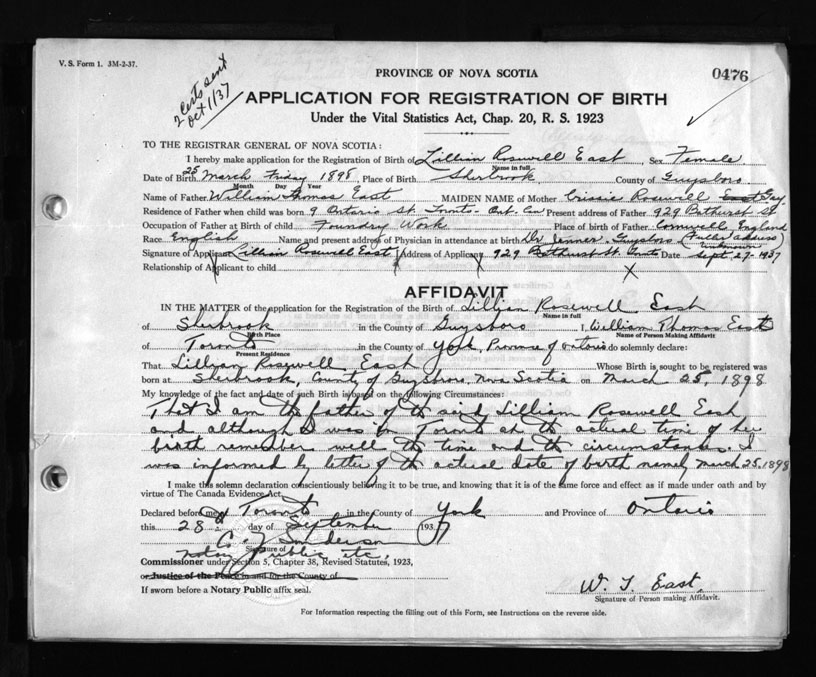 V. S. Form 1. 3M-2-37.
2 Certs sent
Oct 1/37
0476
PROVINCE OF NOVA SCOTIA
APPLICATION FOR REGISTRATION OF BIRTH
Under the Vital Statistics Act, Chap. 20, R. S. 1923
TO THE REGISTRAR GENERAL OF NOVA SCOTIA:
I hereby make application for the Registration of Birth of Lillian Roswell East Sex Female
Name in full
Date of Birth 25 March Friday 1898, Place of Birth Sherbrook County of Guysboro
Month Day Year
Name of Father William Thomas East MAIDEN NAME of Mother Crissie Roswell East Gay
Residence of Father when child was born 9 Ontario St Toronto - Ont. Can Present address of Father 929 Bathurst St
Occupation of Father at Birth of child Foundry Work Place of birth of Father Cornwall England
Race English Name and present address of Physician in attendance at birth Dr Jenner - Guysboro (Fuller address unknown)
Signature of Applicant Lillian Roswell East Address of Applicant 929 Bathurst St. Toronto Date Sept 27-1937
Relationship of Applicant to child
AFFIDAVIT
IN THE MATTER of the application for the Registration of the Birth of Lillian Rosewell East
Name in full
of Sherbrook in the County of Guysboro I, William Thomas East
Birth Place Name of Person Making Affidavit
of Toronto in the County of York, Province of Ontario do solemnly declare:
Present Residence
That Lillyan Rosewell East Whose Birth is sought to be registered was
born at Sherbrook, County of Guysboro, Nova Scotia on March 25, 1898
My knowledge of the fact and date of such Birth is based on the following Circumstances:
That I am the father of the said Lilliam Rosewell East
and although I was in Toronto at the actual time of her
birth remember well the time and the circumstances. I
was informed by letter of the actual date of birth namely March 25, 1898
I make this solemn declaration conscientiously believing it to be true, and knowing that it is of the same force and effect as if made under oath and by
virtue of The Canada Evidence Act.
Declared before me at Toronto in the County of York and Province of Ontario
this 28 day of September 1937
Signature of
Notary Public etc.
Commissioner under Section 5, Chapter 38, Revised Statutes, 1923,
or Justice of the Peace in and for the County of
If sworn before a Notary Public affix seal.
W. T. East.
Signature of Person making Affidavit.
For Information respecting the filling out of this Form, see Instructions on the reverse side.